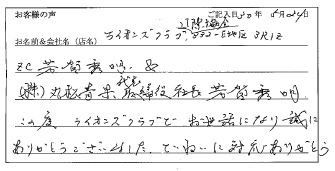 お客様の声 ご記入日 30年 4月24日
お名前&会社名(店名) ライオンズクラブ 333-E地区 3R1Z
ZC 芳賀 秀明
(株) 代表取締役社長 芳賀秀明
この度 ライオンズクラブで お世話になり 誠に
ありがとうございました ていねいに対応ありがとう